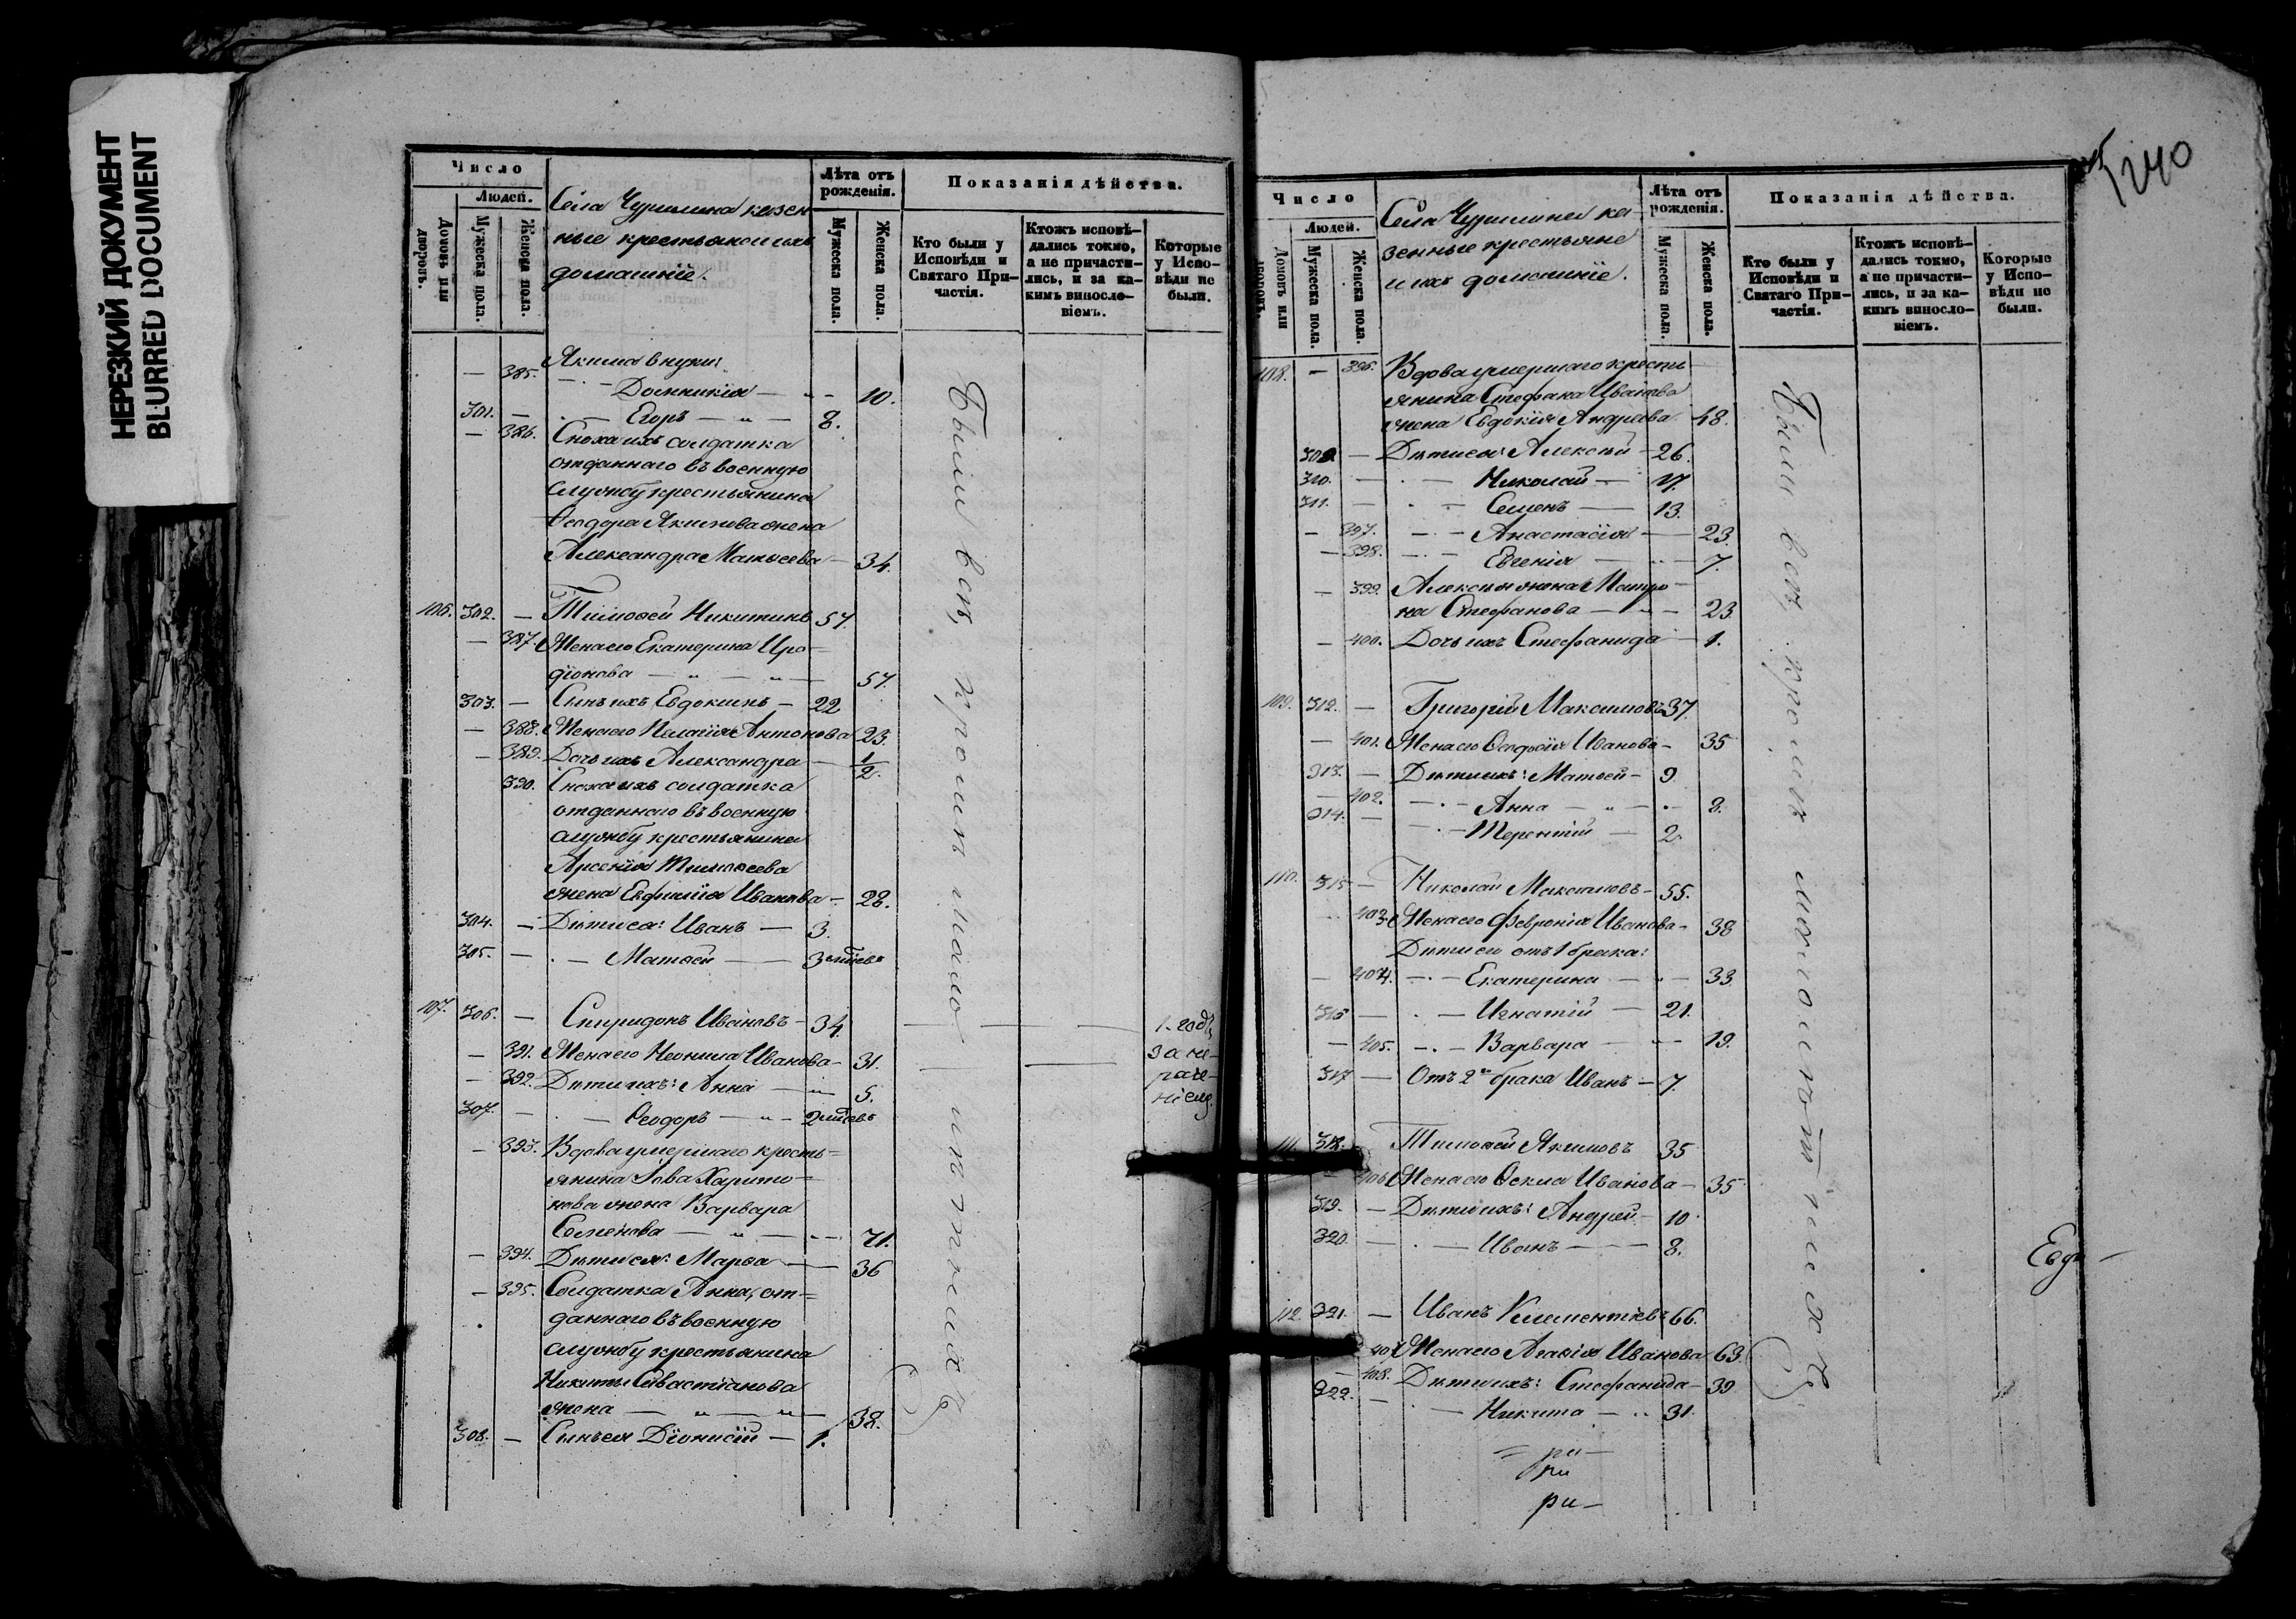 НЕРЕЗКИЙ ДОКУМЕНТ
BLURRED DOCUMENT
Число
Людей.
Домовъ или дворовъ.
Мужеска пола.
Женска пола.
Села Чурилина казен
ные крестьяне и ихъ
домашнiе.
Лѣта отъ рожденiя.
Мужеска пола.
Женска пола.
Показанiя дѣйства.
Кто были у Исповѣди и Святаго При-частiя.
Ктожъ исповѣ-дались токмо, а не причасти-лись, и за ка-кимъ винословiемъ.
Которые у Испо-вѣди не были.
Якима внуки:
— 385. — Домникiя — 10.
301. — — Егоръ — „ — 8.
— 386. Сноха ихъ солдатка
отданнаго въ военную
службу крестьянина
Ѳеодора Якимова жена
Александра Матвеева — 34.
106. 302. — Тимоѳей Никитинъ 57.
— 387. Жена его Екатерина Иро-
дiонова — „ — „ — 57.
303. — Сынъ ихъ Евдокимъ — 22
— 388. Жена его Пелагiя Антонова 23.
— 389. Дочь ихъ Александра — 1/2.
390. Сноха ихъ солдатка
отданнаго въ военную
службу крестьянина
Арсенiя Тимоѳеева
жена Евфимiя Иванова — 28.
304. — Дѣти ея: Иванъ — 3.
305. — — Матѳей — 3 мѣсяцевъ
107. 306. — Спиридонъ Ивановъ — 34.
1. годъ
— 391. Жена его Неонила Иванова — 31.
за не-
— 392. Дѣти ихъ: Анна — „ 5.
раче-
нiемъ.
307. — — Ѳеодоръ — „ — 2 мѣсяцевъ
— 393. Вдова умершаго кресть=
янина Iова Харито=
нова жена Варвара
Семенова — „ — 71.
— 394. Дѣти ея: Марѳа — 36
— 395. Солдатка Анна, от=
даннаго въ военную
службу крестьянина
Никиты Савастiанова
жена — „ — „ — 38.
308. — Сынъ ея Дiонисiй — 1.
Были всѣ, кромѣ малолѣтныхъ
240
Число
Людей.
Домовъ или дворовъ.
Мужеска пола.
Женска пола.
Села Чурилина ка
зенные крестьяне
и ихъ домашнiе.
Лѣта отъ рожденiя.
Мужеска пола.
Женска пола.
Показанiя дѣйства.
Кто были у Исповѣди и Святаго При-частiя.
Ктожъ исповѣ-дались токмо, а не причасти-лись, и за ка-кимъ винословiемъ.
Которые у Испо-вѣди не были.
108. — 396. Вдова умершаго крестья-
янина Стефана Иванова
жена Евдокiя Андреева 48.
309. — Дѣти ея: Алексѣй — 26.
310. — — Николай — 17.
311. — — Семенъ — 13.
— 397. — Анастасiя — 23.
— 398. — Евгенiя — 7.
— 399. Алексѣя жена Матро-
на Стефанова — „ — 23
— 400. Дочь ихъ Стефанида — 1.
109. 312. — Григорiй Максимовъ 37.
— 401. Жена его Ѳеодосiя Иванова — 35
313. — Дѣти ихъ: Матѳей — 9
— 402. — Анна — „ — 8.
314. — — Терентiй — 2.
110. 315 — Николай Максимовъ — 55.
403. Жена его Февронiя Иванова — 38
Дѣти его отъ 1 брака:
— 404. — Екатерина — 33.
316 — — Игнатiй — 21.
— 405. — Варвара — 19.
317 — Отъ 2го брака Иванъ — 7.
111. 318. Тимоѳей Якимовъ 35
406 Жена его Ѳекла Иванова — 35
319. — Дѣти ихъ: Андрей — 10
320. — — Иванъ — 8.
Евдо-
112. 321. — Иванъ Климентiевъ 66.
407 Жена его Агафiя Иванова 63
— 408. Дѣти ихъ: Стефанида — 39
322. — — Никита — 31.
= ри —
ри
ри —
Были всѣ, кромѣ малолѣтныхъ